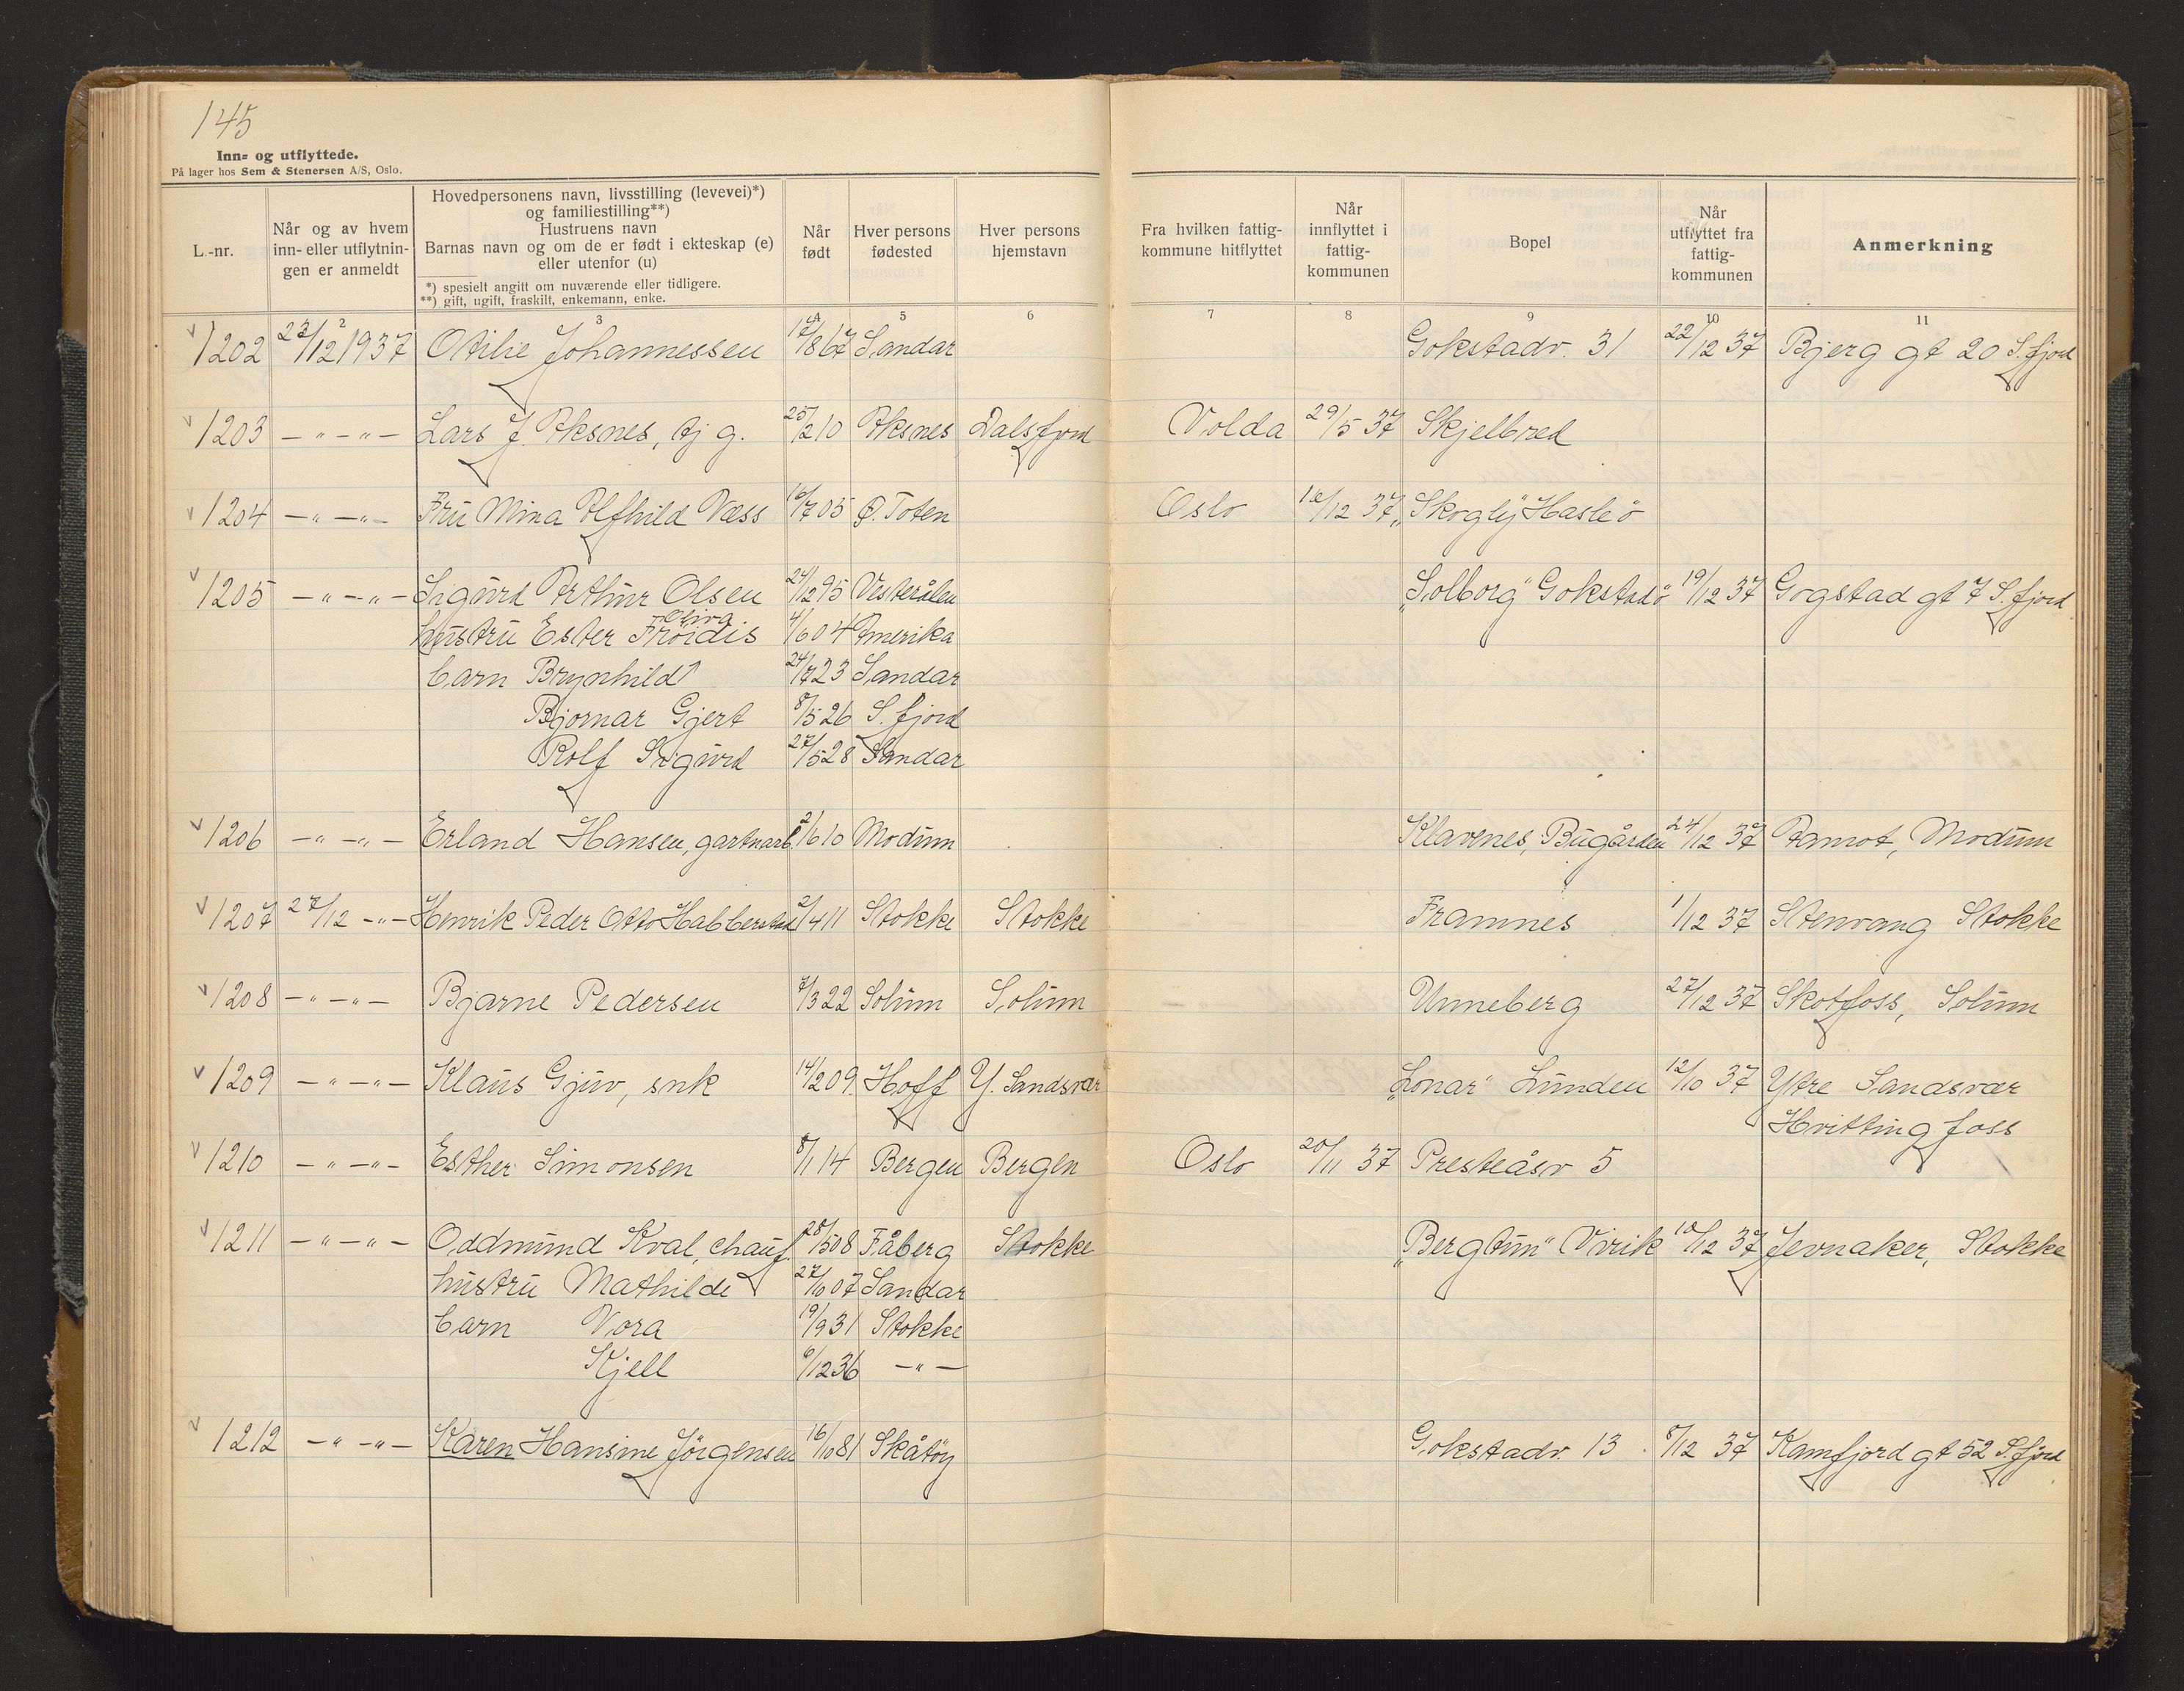 145
Inn- og utflyttede.
På lager hos Sem & Stenersen A/S, Oslo.
L.-nr.
Når og av hvem inn- eller utflytnin-gen er anmeldt
Hovedpersonens navn, livsstilling (levevei)*) og familiestilling**)
Hustruens navn
Barnas navn og om de er født i ekteskap (e) eller utenfor (u)
*) spesielt angitt om nuværende eller tidligere.
**) gift, ugift, fraskilt, enkemann, enke.
Når født
Hver persons fødested
Hver persons hjemstavn
Fra hvilken fattig-kommune hitflyttet
Når innflyttet i fattig-kommunen
Bopel
Når utflyttet fra fattig-kommunen
Anmerkning
2 3 4 5 6 7 8 9 10 11
1202 23/12 1937 Otilie Johannessen 17/8 67 Sandar Gokstadv. 31 22/12 37 Bjerg gt 20 S.fjord
1203 -"-"- Lars J. Aksnes, tj g. 25/2 10 Aksnes Dalsfjord Volda 29/5 37 Skjelbred
1204 -"-"- Fru Mina Alfhild Næss 16/7 05 Ø. Toten Oslo 18/12 37 "Skogly" Hasle ö
1205 -"-"- Sigurd Arthur Olsen 24/12 95 Vesterålen "Solborg" Gokstad ö 19/12 37 Gogstad gt 7 S.fjord
Oliva
hustru Ester Fröidis 4/6 04 Amerika
barn Brynhild 24/7 23 Sandar
Bjornar Gjert 8/5 26 S.fjord
Rolf Sigurd 27/5 28 Sandar
1206 -"-"- Erland Hansen, gartnarb. 2/6 10 Modum Klavenes, Bugården 24/12 37 Åmot, Modum
1207 27/12 -"- Henrik Peder Otto Habberstad 2/4 11 Stokke Stokke Framnes 1/12 37 Stenvang Stokke
1208 -"-"- Bjarne Pedersen 7/3 22 Solum Solum Unneberg 27/12 37 Skotfoss, Solum
1209 -"-"- Klaus Gjuv, snk 14/2 09. Hoff Y. Sandsvær "Lonar" Lunden 12/10 37 Ytre Sandsvær
Hvittingfoss
1210 -"-"- Esther Simonsen 8/1 14 Bergen Bergen Oslo 20/11 37 Presteåsv 5
1211 -"-"- Oddmund Kval, chauf. 28/5 08 Fåberg Stokke "Bergtun" Virik 18/12 37 Jevnaker, Stokke
hustru Mathilde 27/6 07 Sandar
barn Vora 19/9 31 Stokke
Kjell 6/12 36 -"-
1212 -"-"- Karen Hansine Jörgensen 16/10 81 Skåtöy Gokstadv. 13 8/12 37 Kamfjord gt 52 S.fjord